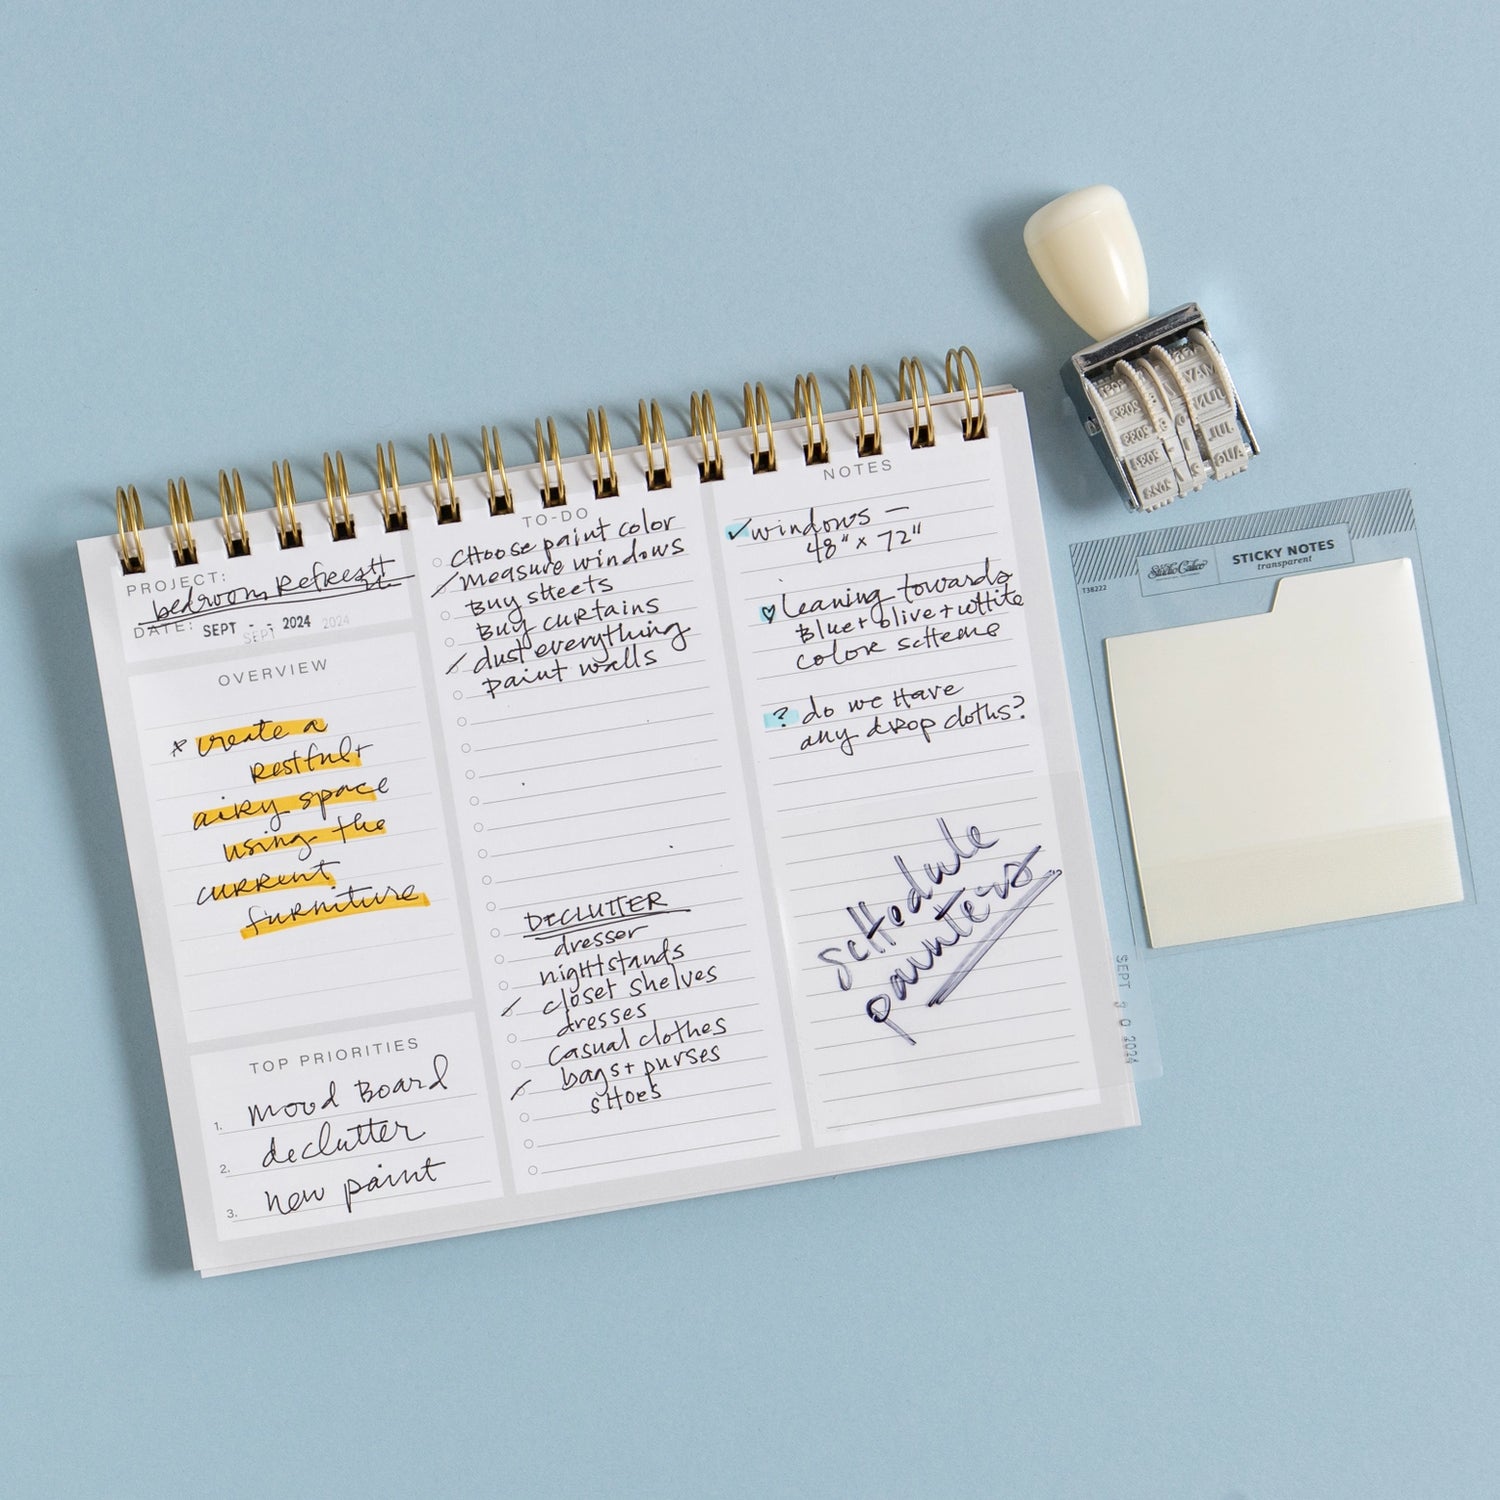 PROJECT:
bedroom Refresh
DATE: SEPT - - 2024
SEPT 2024
OVERVIEW
* create a
restful +
airy space
using the
current
furniture
TOP PRIORITIES
1. mood Board
2. declutter
3. new paint
TO-DO
CHoose paint color
measure windows
Buy sheets
Buy curtains
dust everything
paint walls
DECLUTTER
dresser
nightstands
closet shelves
dresses
casual clothes
bags + purses
sHoes
NOTES
✓ windows —
48" x 72"
♥ leaning towards
Blue + olive + white
color scheme
? do we Have
any drop cloths?
scHedule
painters
SEPT 3 0 2024
Studio Calico
STICKY NOTES
transparent
T38222
MAY
JUN
JUL
AUG